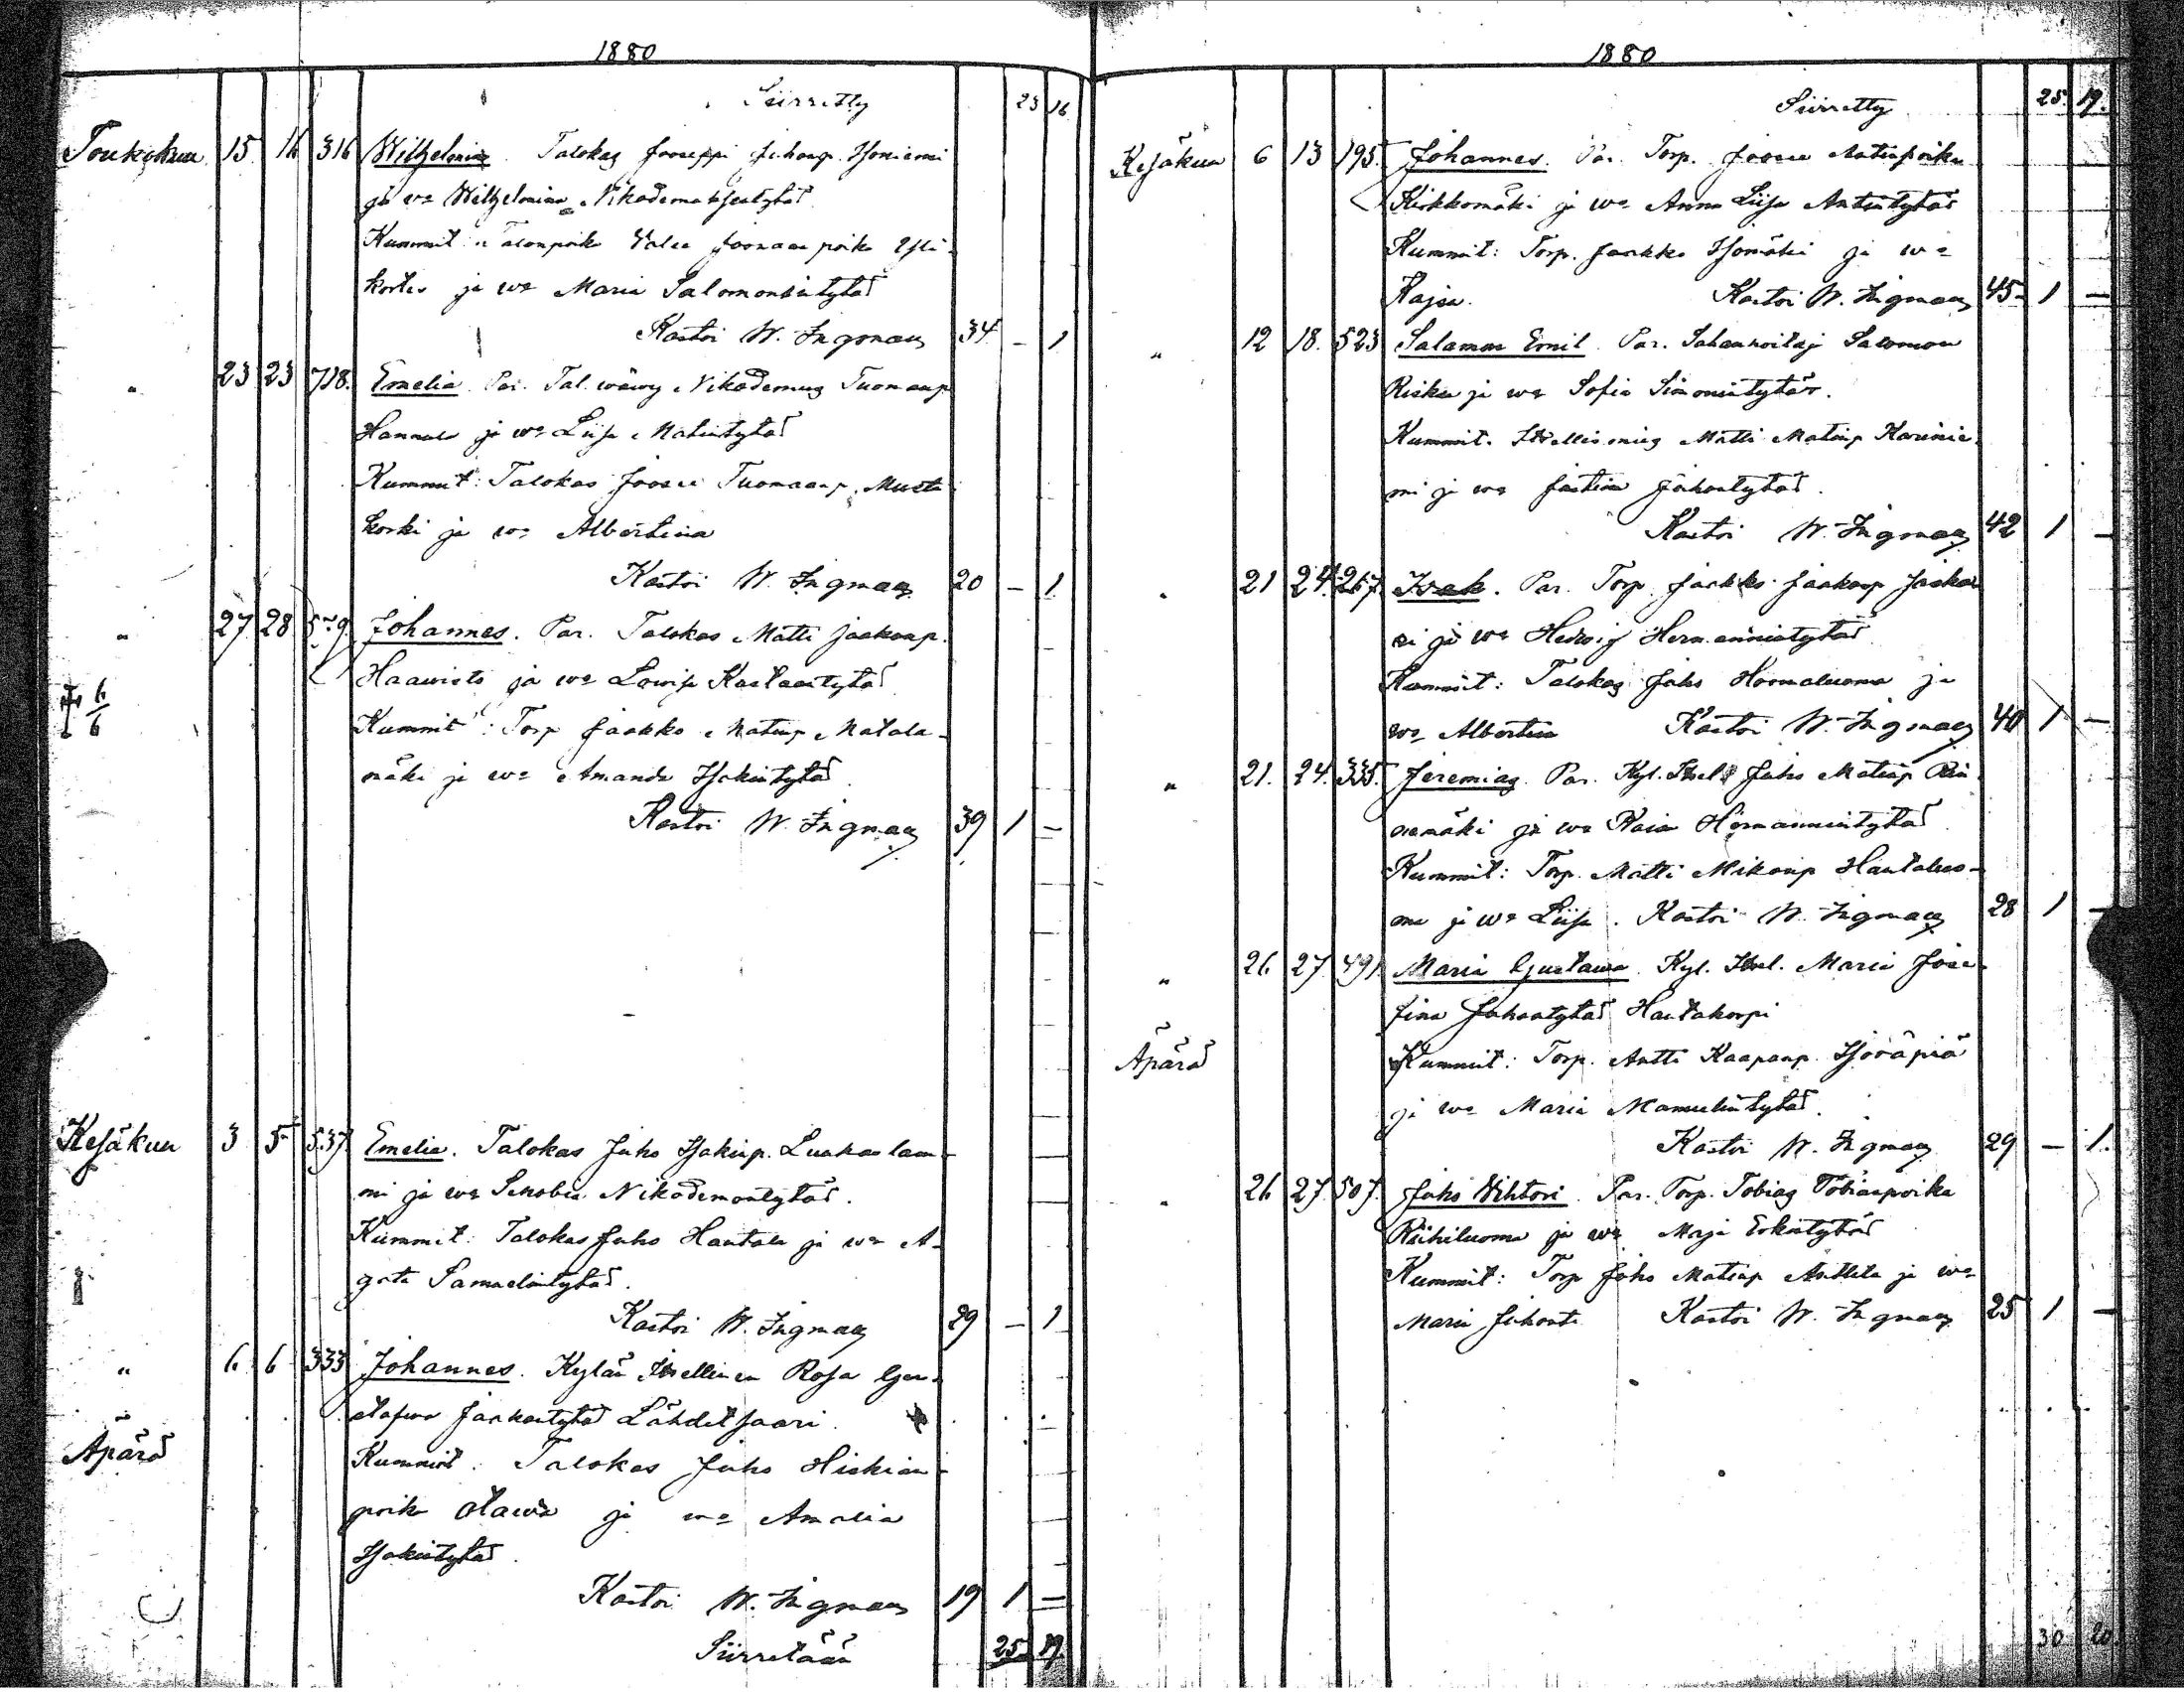 1880
Siirretty 23 16
Toukokuu 15 16 316 Wilhelmina. Talokas Jooseppi Juhonp. Isoniemi
ja wa Wilhelmina Nikodemuksentytär
Kummit: Talonpoik Joonaanpoika Yli-
ja wa Maria Salomonintytär
Kastoi W. Ingman 34 – 1
" 23 23 718. Emelia. Par. Tal. wäwy Nikodemus Tuomaanp
Hannula ja wa Liisa Matintytär
Kummit: Talokas Joose Tuomaanp. Musta
korki ja wa Albertina
Kastoi W. Ingman 20 – 1
" 27 28 Johannes. Par. Talokas Matti Jaakonp.
Haawisto ja wa Lowisa Kustaantytär
6/6
Kummit: Torp Jaakko Matinp Matala-
mäki ja wa Amanda Isakintytär
Kastoi W. Ingman 39 1 –
Kesäkuu 3 5 537. Emelia. Talokas Juho Isakinp. Luukaslam-
mi ja wa Senobia Nikodemontytär.
Kummit: Talokas Juho Hautala ja wa A-
gata Samuelintytär.
Kastoi W. Ingman 29 – 1
" 6 6 333 Johannes. Kylän Itsellinen Rosa Gus-
tafwa Jaakontytär Lähdetsaari.
Äpärä
Kummit: Talokas Juho Hiskian-
poika ja wa Amalia
Isakintytär
Kastoi W. Ingman 19 1 –
Siirretään 25 19.
1880
Siirretty 25. 19.
Kesäkuu 6 13 195. Johannes. Par. Torp. Joose Matinpoika
Kirkkomäki ja wa Anna Liisa Antintytär
Kummit: Torp. Jaakko Isomäki ja wa
Kajsa. Kastoi W. Ingman 45 1 –
" 12 18. 523 Salamon Emil. Par. Sahanhoitaj Salomon
Risku ja wa Sofia Simonintytär.
Kummit. Itsellismies Matti Matinp Karinie-
mi ja wa Justina Juhontytär.
Kastoi W. Ingman 42 1 –
" 21 24. 267. Isak. Par. Torp. Jaakko Jaakonp
ja wa Hedwig Hermannintytär
Kummit: Talokas Juho Hoornaluoma ja
wa Albertina Kastoi W. Ingman 40 1 –
" 21. 24. 335. Jeremias. Par. Kyl. Itsel Juho Matinp
mäki ja wa Kaisa Hermannintytär
Kummit: Torp. Matti Mikonp Hautaluo-
ma ja wa Liisa. Kastoi W. Ingman 28 1 –
" 26 27 491. Maria Gustawa. Kyl. Itsel. Maria Jose-
fina Juhontytär Hautakorpi
Äpärä
Kummit: Torp. Antti Kaaponp.
ja wa Maria Manuelintytär.
Kastoi W. Ingman 29 – 1.
" 26 27. 507. Juho Wihtori. Par. Torp. Tobias Tobiaanpoika
Riihiluoma ja wa Maja Erkintytär
Kummit: Torp Juho Matinp Anttila ja wa
Maria Juhont. Kastoi W. Ingman 25 1 –
30 20.